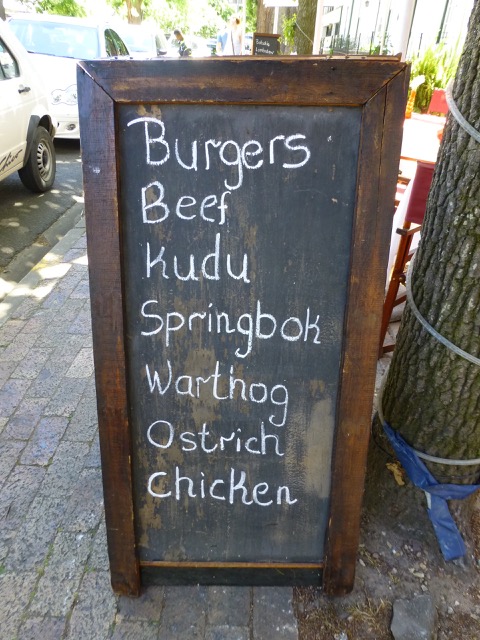 Burgers
Beef
Kudu
Springbok
Warthog
Ostrich
Chicken